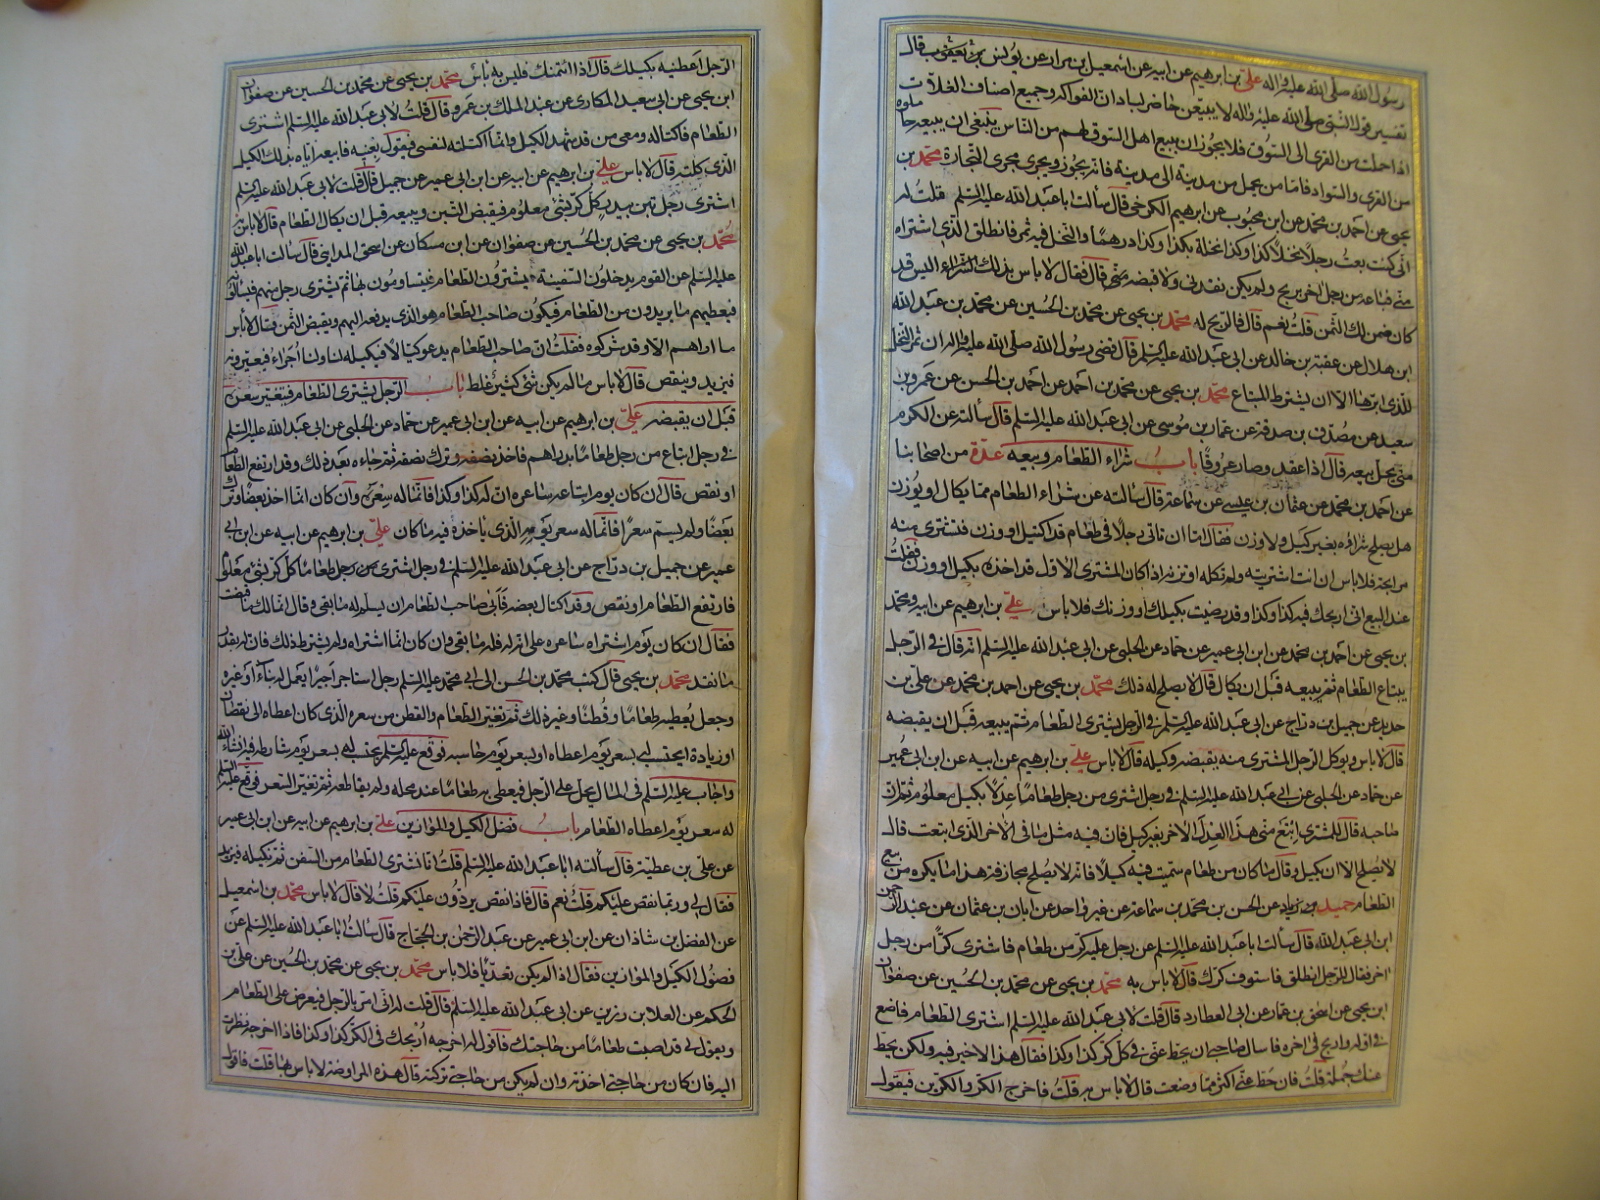 رسول الله صلى الله عليه واله علي بن ابرهيم عن ابيه عن اسمعيل بن مرار عن يونس بن يعقوب قال
تفسير قول النبي صلى الله عليه واله لا يبيعن حاضر لباد ان الفواكه وجميع اصناف الغلات
اذا حملت من القرى الى السوق فلا يجوز ان يبيع اهل السوق لهم من الناس ينبغي ان يبيعه حاملوه
من القرى والسواد فاما من يحمل من مدينة الى مدينة فانه يجوز ويجرى مجرى التجارة محمد بن
يحيى عن احمد بن محمد عن ابن محبوب عن ابرهيم الكرخي قال سالت ابا عبد الله عليه السلم قلت له
اني كنت بعت رجلا نخلا كذا وكذا نخلة بكذا وكذا درهما والنخل فيه ثمر فانطلق الذي اشتراه
مني فباعه من رجل اخر بربح ولم يكن نقدني ولا قبضه مني قال فقال لا باس بذلك الشراء اليس قد
كان ضمن لك الثمن قلت نعم قال فالربح له محمد بن يحيى عن محمد بن الحسين عن محمد بن عبد الله
ابن هلال عن عقبة بن خالد عن ابي عبد الله عليه السلم قال قضى رسول الله صلى الله عليه واله ان ثمر النخل
للذي ابرها الا ان يشترط المبتاع محمد بن يحيى عن محمد بن احمد عن احمد بن الحسن عن عمرو بن
سعيد عن مصدق بن صدقة عن عمار بن موسى عن ابي عبد الله عليه السلم قال سالته عن الكرم
متى يحل بيعه قال اذا عقد وصار عروقا باب شراء الطعام وبيعه عدة من اصحابنا
عن احمد بن محمد عن عثمان بن عيسى عن سماعة قال سالته عن شراء الطعام مما يكال او يوزن
هل يصلح شراؤه بغير كيل ولا وزن فقال اما ان تاتي رجلا في طعام قد اكتيل او وزن فتشترى منه
مرابحة فلا باس ان انت اشتريته ولم تكله او تزنه اذا كان المشترى الاول قد اخذه بكيل او وزن فقلت
عند البيع اني اربحك فيه كذا وكذا وقد رضيت بكيلك او وزنك فلا باس علي بن ابرهيم عن ابيه ومحمد
بن يحيى عن احمد بن محمد عن ابن ابي عمير عن حماد عن الحلبي عن ابي عبد الله عليه السلم انه قال في الرجل
يبتاع الطعام ثم يبيعه قبل ان يكال قال لا يصلح له ذلك محمد بن يحيى عن احمد بن محمد عن علي بن
حديد عن جميل بن دراج عن ابي عبد الله عليه السلم في الرجل يشترى الطعام ثم يبيعه قبل ان يقبضه
قال لا باس ويوكل الرجل المشترى منه بقبضه وكيله قال لا باس علي بن ابرهيم عن ابيه عن ابن ابي عمير
عن حماد عن الحلبي عن ابي عبد الله عليه السلم في رجل اشترى من رجل طعاما عدلا بكيل معلوم ثم ان
صاحبه قال للمشترى ابتع مني هذا العدل الاخر بغير كيل فان فيه مثل ما في الاخر الذي ابتعت قال
لا يصلح الا ان يكيل وقال ما كان من طعام سميت فيه كيلا فانه لا يصلح مجازفة هذا ما يكره من بيع
الطعام حميد بن زياد عن الحسن بن محمد بن سماعة عن غير واحد عن ابان بن عثمان عن عبد الرحمن
ابن ابي عبد الله قال سالت ابا عبد الله عليه السلم عن رجل عليه كر من طعام فاشترى كرا من رجل
اخر فقال للرجل انطلق فاستوف كرك قال لا باس به محمد بن يحيى عن محمد بن الحسين عن صفوان
ابن يحيى عن اسحق بن عمار عن ابي العطارد قال قلت لابي عبد الله عليه السلم اشترى الطعام فاضع
في اوله واربح في اخره فاسال صاحبي ان يحط عني في كل كر كذا وكذا فقال هذا لا خير فيه ولكن يحط
عنك جملة قلت فان حط عني اكثر مما وضعت قال لا باس به قلت فاخرج الكر والكرين فيقول
الرجل اعطنيه بكيلك قال اذا ائتمنك فليس به باس محمد بن يحيى عن محمد بن الحسين عن صفوان
ابن يحيى عن ابي سعيد المكارى عن عبد الملك بن عمرو قال قلت لابي عبد الله عليه السلم اشترى
الطعام فاكتاله ومعي من قد شهد الكيل وانما اكتلته لنفسي فيقول بعنيه فابيعه اياه بذلك الكيل
الذي كلته قال لا باس علي بن ابرهيم عن ابيه عن ابن ابي عمير عن جميل قال قلت لابي عبد الله عليه السلم
اشترى رجل تبن بيدر كل كر بشئ معلوم فيقبض التبن ويبيعه قبل ان يكال الطعام قال لا باس به
محمد بن يحيى عن محمد بن الحسين عن صفوان عن ابن مسكان عن اسحق المدايني قال سالت ابا عبد الله
عليه السلم عن القوم يدخلون السفينة يشترون الطعام فيتساومون بها ثم يشترى رجل منهم فيسالونه
فيعطيهم ما يريدون من الطعام فيكون صاحب الطعام هو الذي يدفعه اليهم ويقبض الثمن قال لا باس
ما اراهم الا وقد شركوه فقلت ان صاحب الطعام يدعو كيالا فيكيله لنا ولنا اجراء فيعيرونه
فيزيد وينقص قال لا باس ما لم يكن شئ كثير غلط باب الرجل يشترى الطعام فيتغير سعره
قبل ان يقبضه علي بن ابرهيم عن ابيه عن ابن ابي عمير عن حماد عن الحلبي عن ابي عبد الله عليه السلم
في رجل ابتاع من رجل طعاما بدراهم فاخذ نصفه وترك نصفه ثم جاءه بعد ذلك وقد ارتفع الطعام
او نقص قال ان كان يوم ابتاعه ساعره ان له كذا وكذا فانما له سعره وان كان انما اخذ بعضا وترك
بعضا ولم يسم سعرا فانما له سعر يومه الذي ياخذه فيه ما كان علي بن ابرهيم عن ابيه عن ابن ابي
عمير عن جميل بن دراج عن ابي عبد الله عليه السلم في رجل اشترى من رجل طعاما كل كر بشئ معلوم
فارتفع الطعام او نقص وقد اكتال بعضه فابى صاحب الطعام ان يسلم له ما بقى وقال انما لك ما قبضت
فقال ان كان يوم اشتراه ساعره على انه له فله ما بقى وان كان انما اشتراه ولم يشترط ذلك فان له بقدر
ما نقد محمد بن يحيى قال كتب محمد بن الحسن الى ابي محمد عليه السلم رجل استاجر اجيرا يعمل له بناء او غيره
وجعل يعطيه طعاما وقطنا وغير ذلك ثم تغير الطعام والقطن من سعره الذي كان اعطاه الى نقصان
او زيادة ايحتسب له بسعر يوم اعطاه او بسعر يوم حاسبه فوقع عليه السلم يحتسب له بسعر يوم شارطه فيه انشاء الله
واجاب عليه السلم في المال يحل على الرجل فيعطى به طعاما عند محله ولم يقاطعه ثم تغير السعر فوقع عليه السلم
له سعر يوم اعطاه الطعام باب فضل الكيل والموازين علي بن ابرهيم عن ابيه عن ابن ابي عمير
عن علي بن عطية قال سالت ابا عبد الله عليه السلم قلت انا نشترى الطعام من السفن ثم نكيله فيزيد
فقال لي وربما نقص عليكم قلت نعم قال فاذا نقص يردون عليكم قلت لا قال لا باس محمد بن اسمعيل
عن الفضل بن شاذان عن ابن ابي عمير عن عبد الرحمن بن الحجاج قال سالت ابا عبد الله عليه السلم عن
فضول الكيل والموازين فقال اذا لم يكن تعديا فلا باس محمد بن يحيى عن محمد بن الحسين عن علي بن
الحكم عن العلا بن رزين عن ابي عبد الله عليه السلم قال قلت له اني امر بالرجل فيعرض علي الطعام
ويقول لي قد اصبت طعاما من حاجتك فاقول له اخرجه اربحك في الكر كذا وكذا فاذا اخرجه نظرت
اليه فان كان من حاجتي اخذته وان لم يكن من حاجتي تركته قال هذه المراوضة لا باس بها قلت فاقول